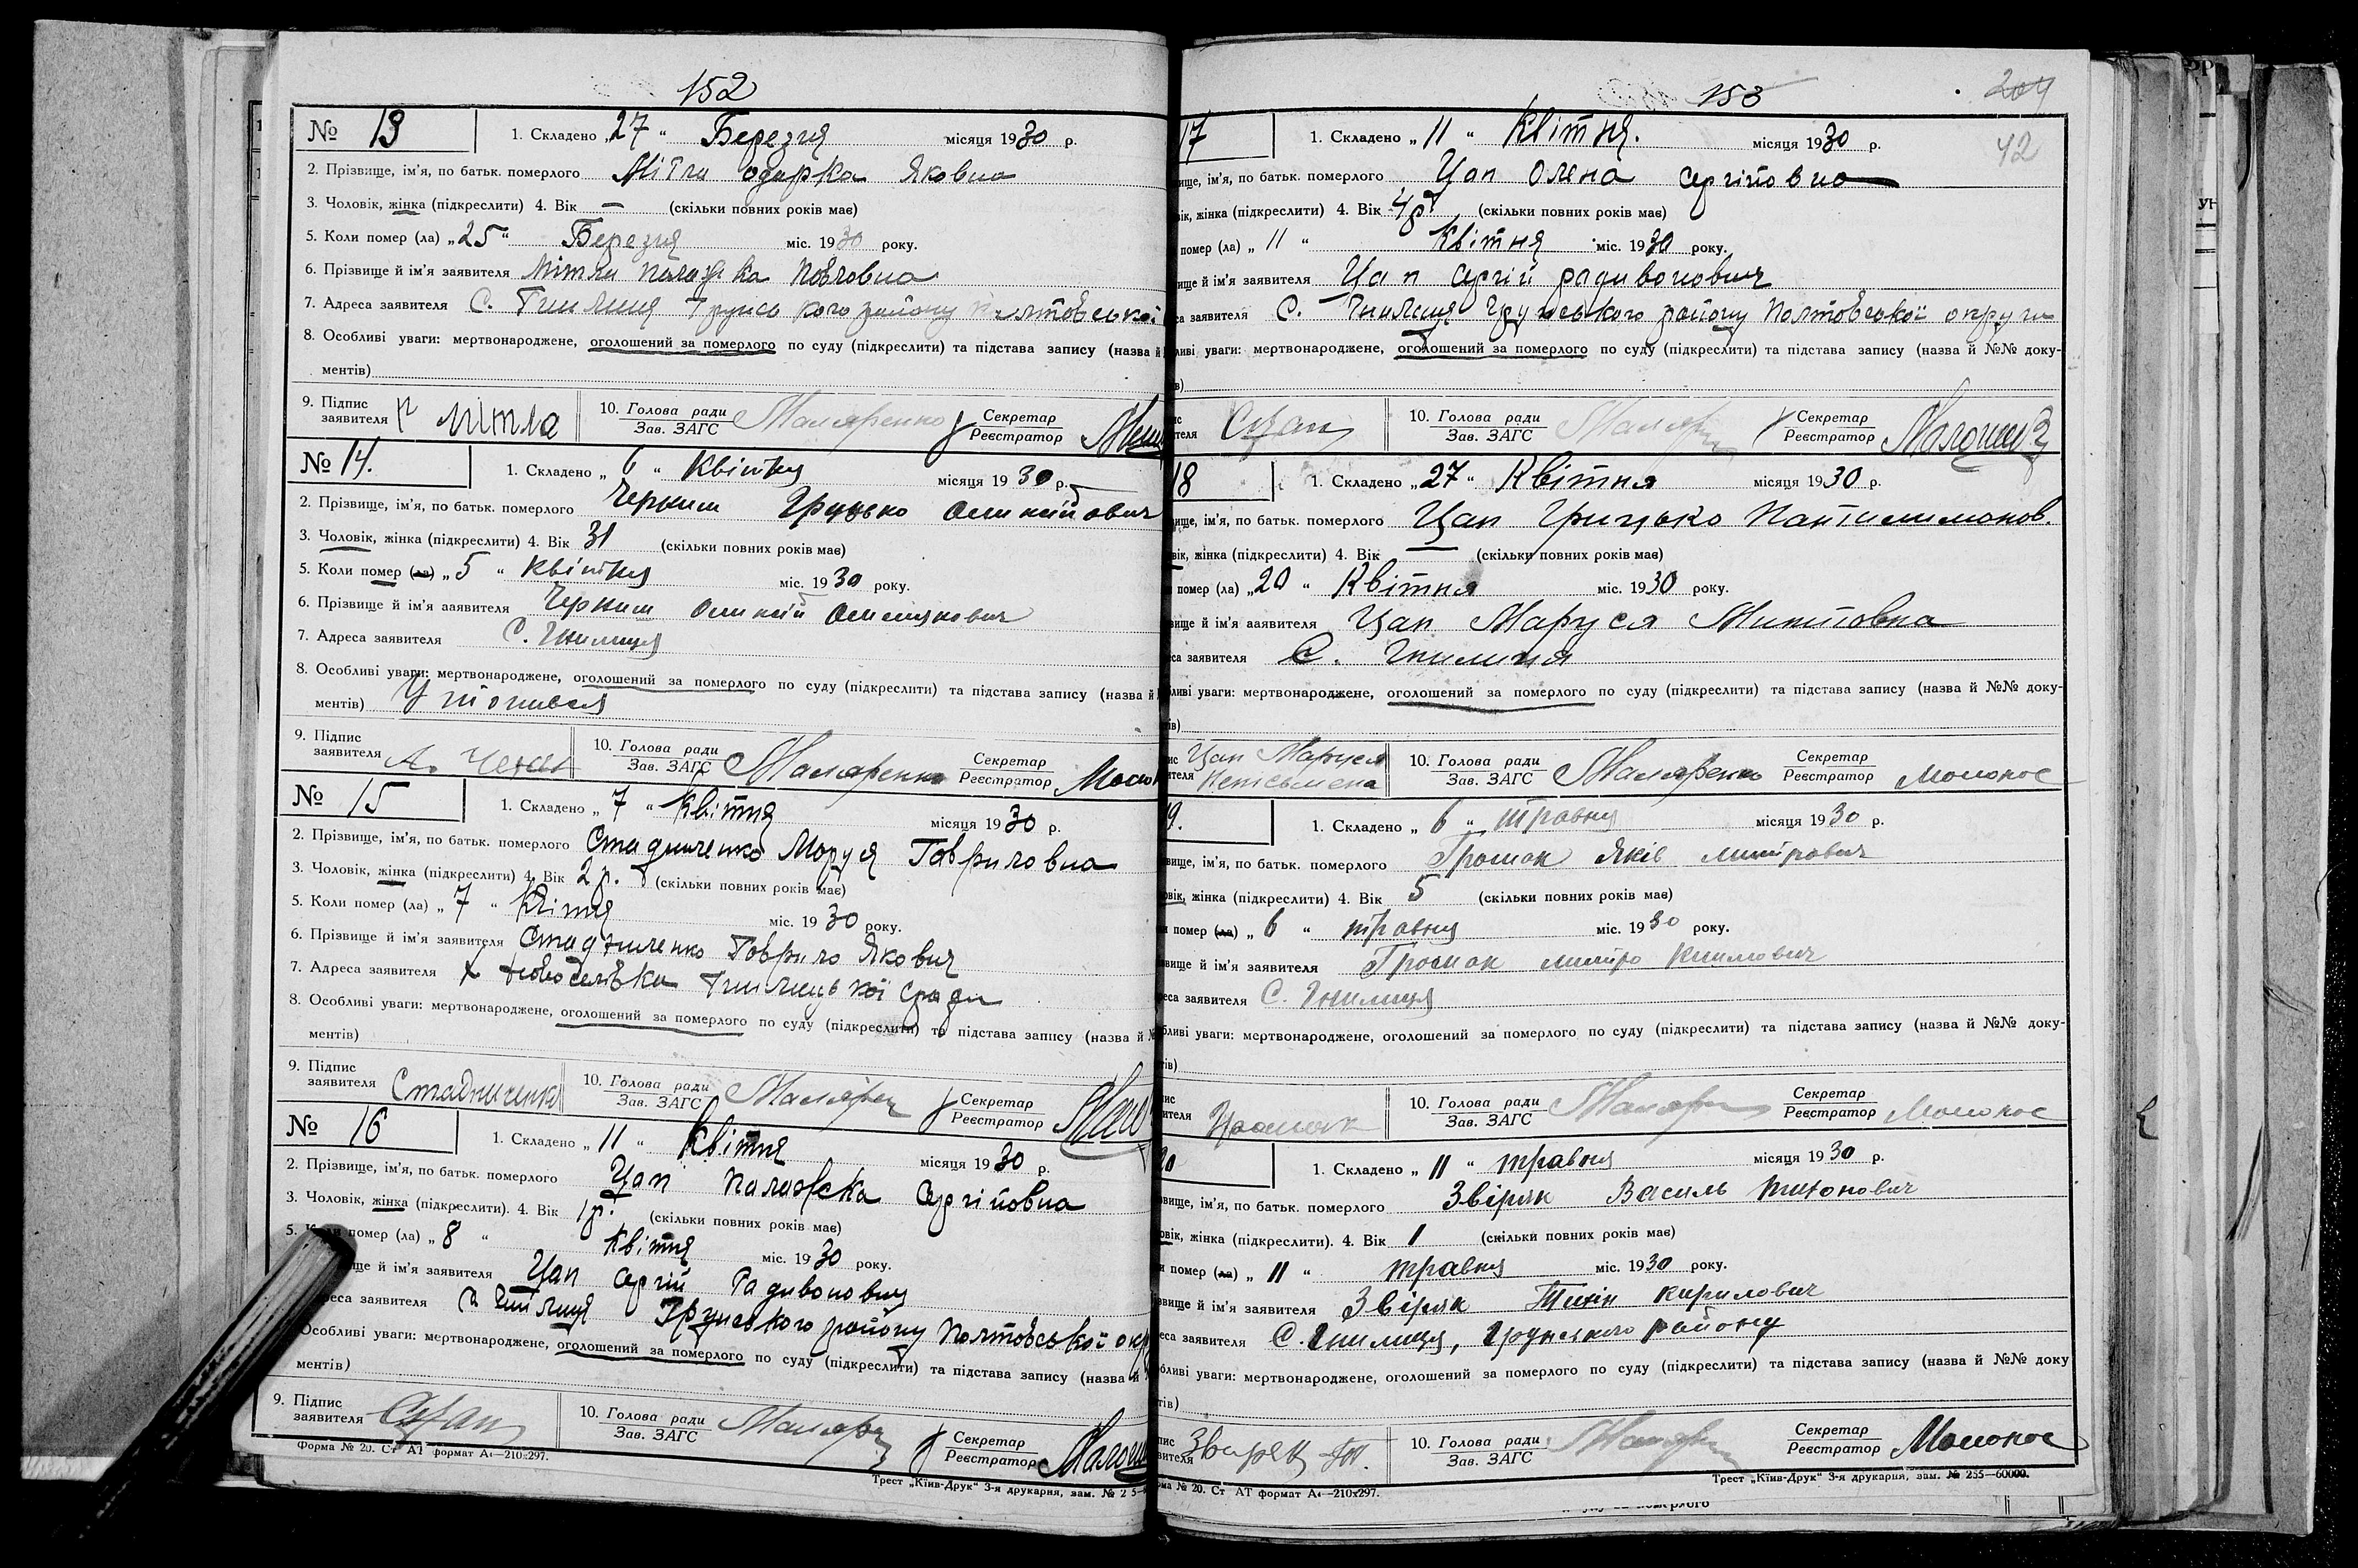 152
№ 13 1. Складено „27“ Березня місяця 1930 р.
2. Прізвище, ім'я, по батьк. померлого Мітли Одарка Яковна
3. Чоловік, жінка (підкреслити) 4. Вік — (скільки повних років має)
5. Коли помер (ла) „25“ Березня міс. 1930 року.
6. Прізвище й ім'я заявителя Мітли Палажка Повловна
7. Адреса заявителя С. Гнилиця Грунського району Полтовської
8. Особливі уваги: мертвонароджене, оголошений за померлого по суду (підкреслити) та підстава запису (назва й
ментів)
9. Підпис заявителя Мітла 10. Голова ради Зав. ЗАГС Маляренко Секретар Реєстратор
№ 14. 1. Складено „6“ Квітня місяця 1930 р.
2. Прізвище, ім'я, по батьк. померлого Черниш Грицько
3. Чоловік, жінка (підкреслити) 4. Вік 31 (скільки повних років має)
5. Коли помер (ла) „5“ Квітня міс. 1930 року.
6. Прізвище й ім'я заявителя Черниш
7. Адреса заявителя С. Гнилиця
8. Особливі уваги: мертвонароджене, оголошений за померлого по суду (підкреслити) та підстава запису (назва й
ментів) Утопився
9. Підпис заявителя 10. Голова ради Зав. ЗАГС Маляренко Секретар Реєстратор
№ 15 1. Складено „7“ Квітня місяця 1930 р.
2. Прізвище, ім'я, по батьк. померлого Стадниченко Маруся Говриловна
3. Чоловік, жінка (підкреслити) 4. Вік 2 р. (скільки повних років має)
5. Коли помер (ла) „7“ Квітня міс. 1930 року.
6. Прізвище й ім'я заявителя Стадниченко Говрило Якович
7. Адреса заявителя х Новоселівка Гнилицької Сради
8. Особливі уваги: мертвонароджене, оголошений за померлого по суду (підкреслити) та підстава запису (назва й №
ментів)
9. Підпис заявителя Стадниченко 10. Голова ради Зав. ЗАГС Секретар Реєстратор
№ 16 1. Складено „11“ Квітня місяця 1930 р.
2. Прізвище, ім'я, по батьк. померлого Цап Палажка Сергіповна
3. Чоловік, жінка (підкреслити). 4. Вік 1 р. (скільки повних років має)
5. помер (ла) „8“ Квітня міс. 1930 року.
ще й ім'я заявителя Цап Сергій Радивонович
реса заявителя С. Гнилиця Грунського району Полтовської окр
Особливі уваги: мертвонароджене, оголошений за померлого по суду (підкреслити) та підстава запису (назва й
ментів)
9. Підпис заявителя СЦап 10. Голова ради Зав. ЗАГС Секретар Реєстратор
Форма № 20. Ст АТ формат А4—210х297.
Трест „Київ-Друк“ 3-я друкарня, зам. № 2 5—
153 204
42
17 1. Складено „11“ Квітня. місяця 1930 р.
ище, ім'я, по батьк. померлого Цап Олена Сергіповна
вік, жінка (підкреслити) 4. Вік 4 р (скільки повних років має)
помер (ла) „11“ Квітня міс. 1930 року.
ище й ім'я заявителя Цап Сергій Радивонович
са заявителя С. Гнилиця Грунського району Полтовської округи
ливі уваги: мертвонароджене, оголошений за померлого по суду (підкреслити) та підстава запису (назва й №№ доку-
ів)
ис теля СЦап 10. Голова ради Зав. ЗАГС Секретар Реєстратор
18 1. Складено „27“ Квітня місяця 1930 р.
ище, ім'я, по батьк. померлого Цап Грицько Пантилимонов.
вік, жінка (підкреслити) 4. Вік — (скільки повних років має)
помер (ла) „20“ Квітня міс. 1930 року.
вище й ім'я заявителя Цап Маруся Микитовна
са заявителя С. Гнилиця
бливі уваги: мертвонароджене, оголошений за померлого по суду (підкреслити) та підстава запису (назва й №№ доку-
тів)
ис теля Цап Маруся Неписьмена 10. Голова ради Зав. ЗАГС Маляренко Секретар Реєстратор Молонос
19. 1. Складено „6“ травня місяця 1930 р.
вище, ім'я, по батьк. померлого Громак Яків Митрович
овік, жінка (підкреслити) 4. Вік 5 (скільки повних років має)
и помер (ла) „6“ травня міс. 1930 року.
вище й ім'я заявителя Громак Митро Климович
реса заявителя С. Гнилиця
бливі уваги: мертвонароджене, оголошений за померлого по суду (підкреслити) та підстава запису (назва й №№ доку-
тів)
ис ителя Громак 10. Голова ради Зав. ЗАГС Секретар Реєстратор Молонос
20 1. Складено „11“ травня місяця 1930 р.
звище, ім'я, по батьк. померлого Звіряк Василь Тихонович
овік, жінка (підкреслити). 4. Вік 1 (скільки повних років має)
и помер (ла) „11“ травня міс. 1930 року.
звище й ім'я заявителя Звіряк Тихін Кирилович
еса заявителя С. Гнилиця, Грунського району
бливі уваги: мертвонароджене, оголошений за померлого по суду (підкреслити) та підстава запису (назва й №№ доку
тів)
пис вителя Звиряк Т. 10. Голова ради Зав. ЗАГС Секретар Реєстратор Молонос
ма № 20. Ст АТ формат А4—210х297.
Трест „Київ-Друк“ 3-я друкарня, зам. № 255—60000.